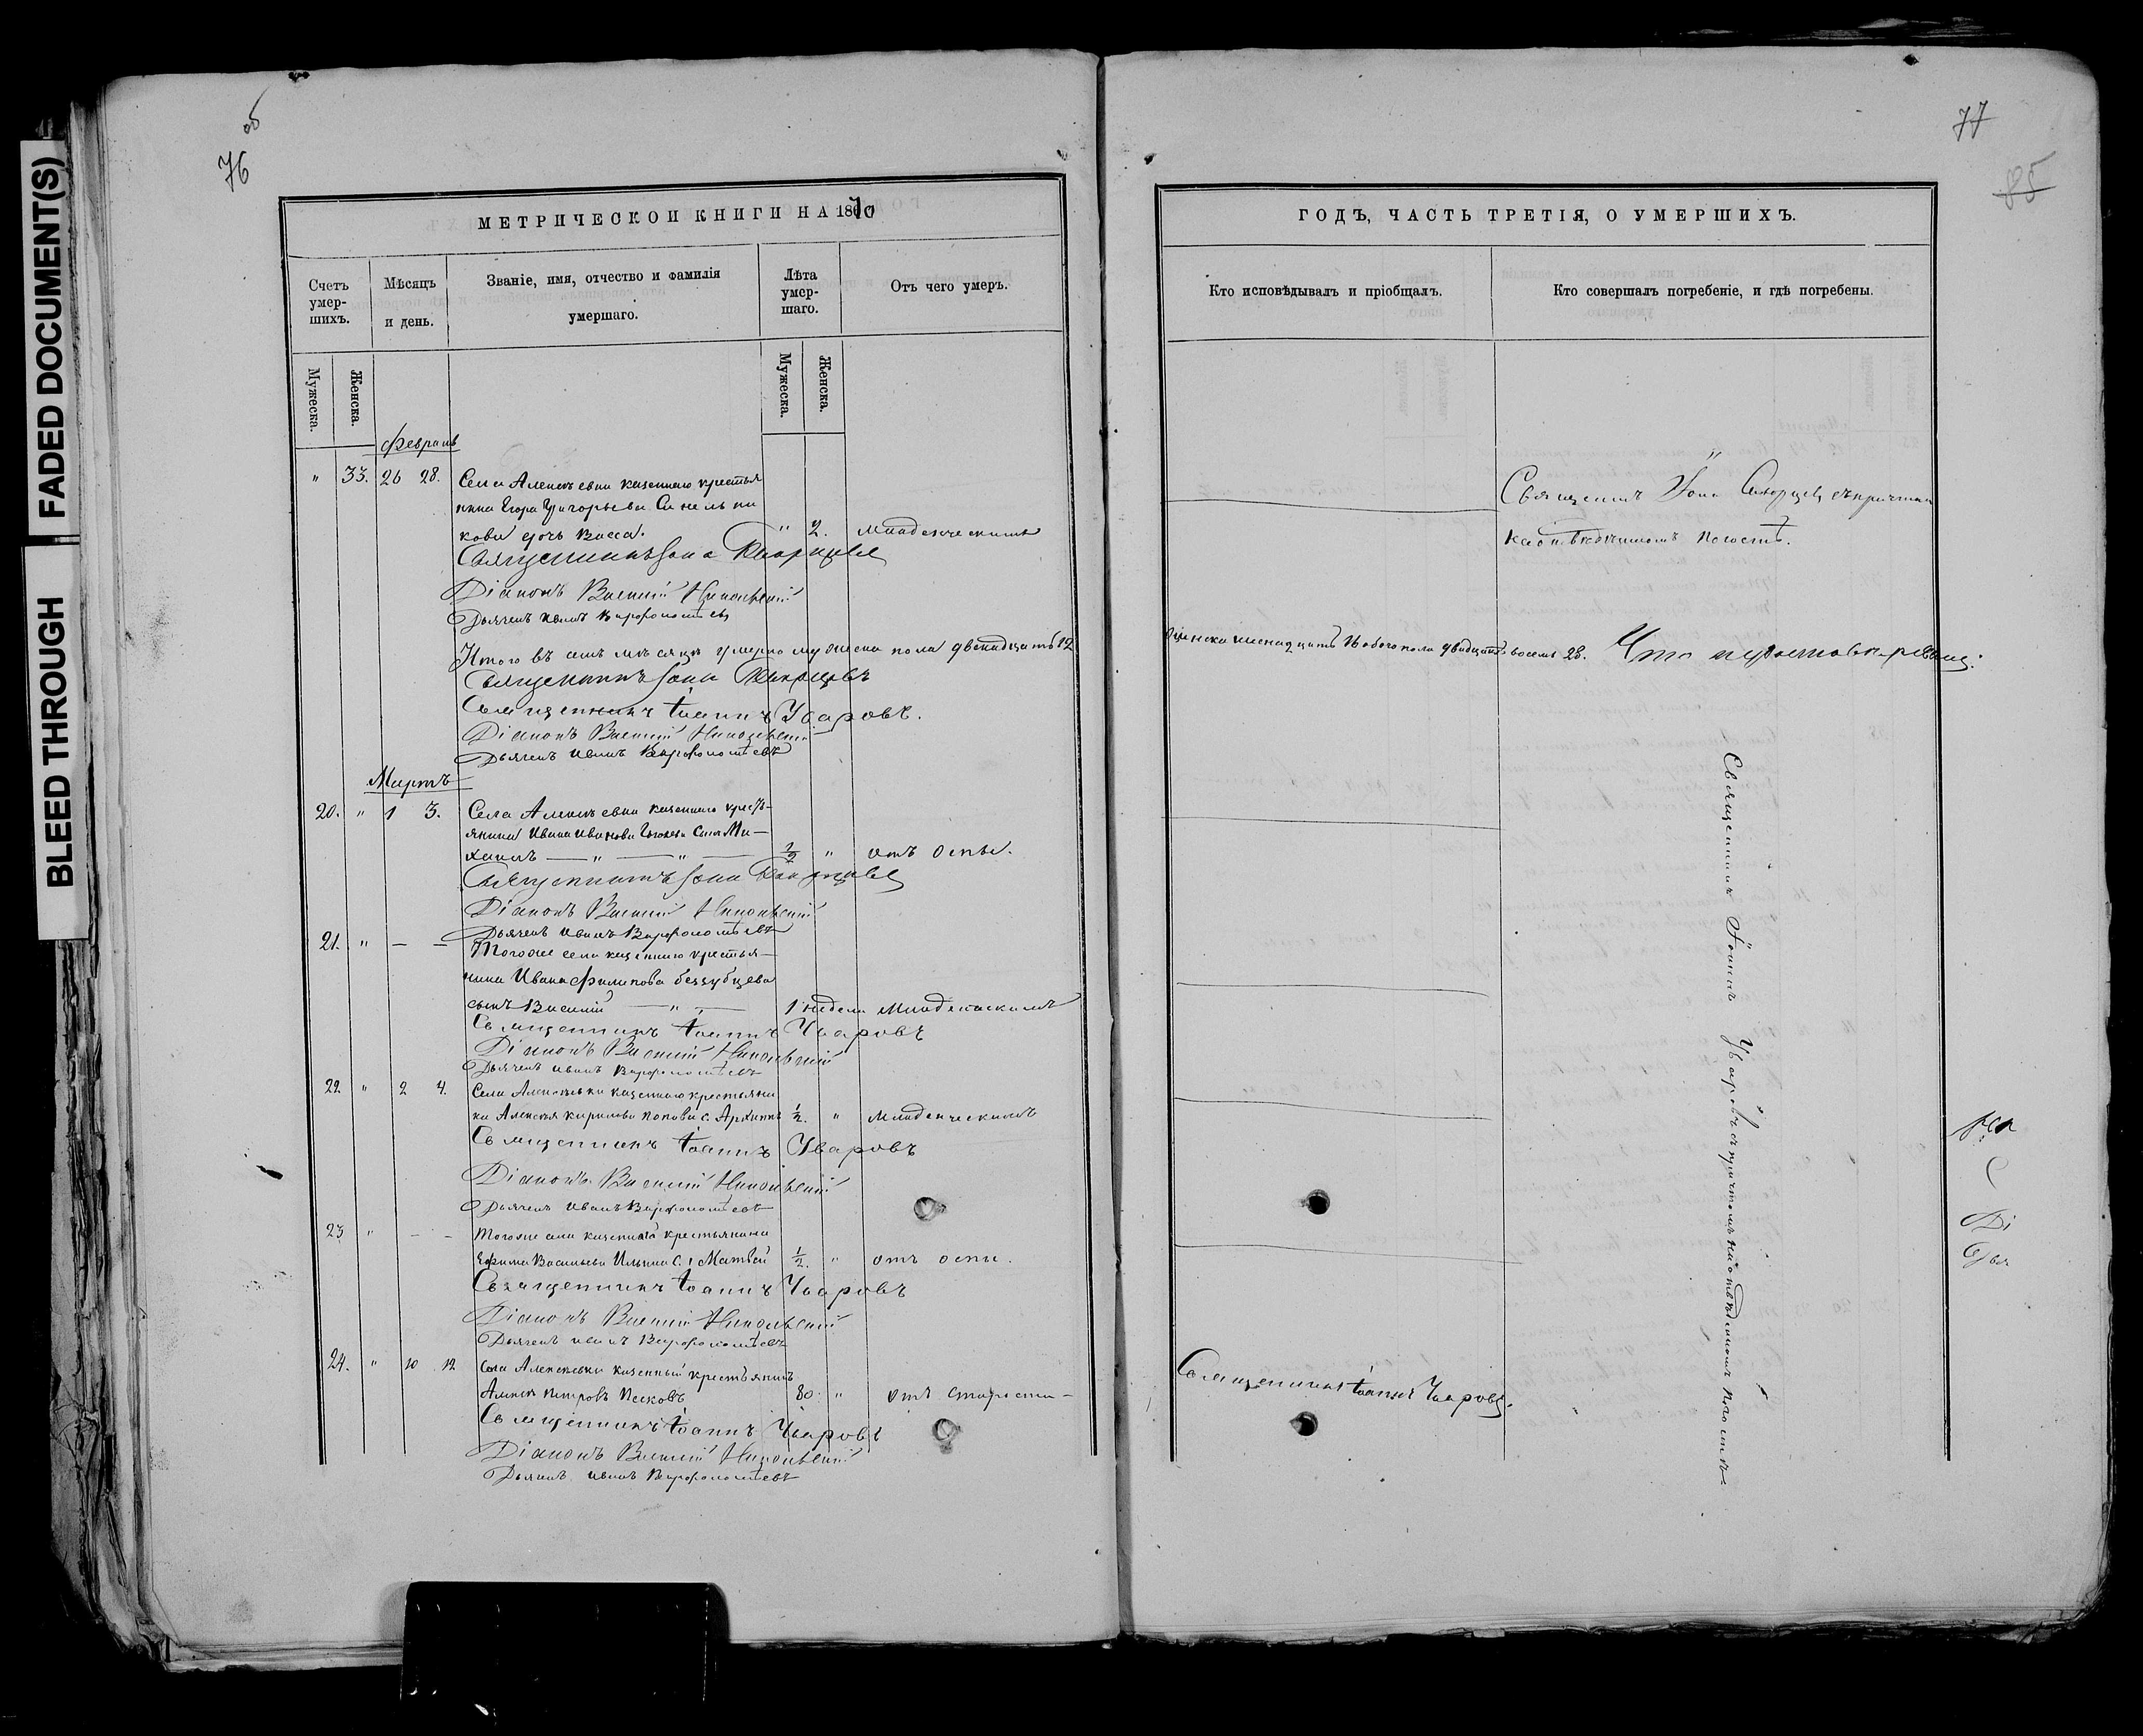 FADED DOCUMENT(S)
BLEED THROUGH
об
76
МЕТРИЧЕСКОЙ КНИГИ НА 1870
Счетъ умер-шихъ.
Мѣсяцъ и день.
Званіе, имя, отчество и фамилія умершаго.
Лѣта умер-шаго.
Отъ чего умеръ.
Мужеска.
Женска.
Мужеска.
Женска.
Февраль
" 33. 26 28. Села Алексѣевки казеннаго крестья
нина Егора Григорьева Синельни
кова дочь Васса. " 2. младенческимъ
Священникъ Іона Скворцевъ
Діаконъ Василій Никольскій
Дьячекъ Иванъ Варфоломѣевъ
Итого въ семъ мѣсяцѣ умерло мужеска пола двенадцать 12
Священникъ Іона Скворцевъ
Священникъ Іоаннъ Уваровъ.
Діаконъ Василій Никольскій
Дьячекъ Иванъ Варфоломѣевъ
Мартъ
20. " 1 3. Села Алексѣевки казеннаго кресть-
янина Ивана Иванова сынъ Ми-
хаилъ — " — " — 1/2 " отъ оспы.
Священникъ Іона Скворцевъ
Діаконъ Василій Никольскій
Дьячекъ Иванъ Варфоломѣевъ
21. " — — Тогоже села казеннаго крестья-
нина Ивана Филипова Беззубцева
сынъ Василій — " — 1 недели Младенческимъ
Священникъ Іоаннъ Уваровъ
Діаконъ Василій Никольскій
Дьячекъ Иванъ Варфоломѣевъ
22. " 2 4. Села Алексѣевки казеннаго крестьяни
на Алексѣя Кирилова Попова с. Архиппъ 1/2. " младенческимъ
Священникъ Іоаннъ Уваровъ
Діаконъ Василій Никольскій
Дьячекъ Иванъ Варфоломѣевъ
23 " - - Тогоже села казеннаго крестьянина
Ефима Васильева Ильина с. Матвей 1/2. " отъ оспы.
Священникъ Іоаннъ Уваровъ
Діаконъ Василій Никольскій
Дьячекъ Иванъ Варфоломѣевъ
24. " 10 12 Села Алексѣевки казенный крестьянинъ
Алексѣй Петровъ Песковъ 80. " отъ старости-
Священникъ Іоаннъ Уваровъ
Діаконъ Василій Никольскій
Дьячекъ Иванъ Варфоломѣевъ
77
85
ГОДЪ, ЧАСТЬ ТРЕТІЯ, О УМЕРШИХЪ.
Кто исповѣдывалъ и пріобщалъ.
Кто совершалъ погребеніе, и гдѣ погребены.
Священникъ Іона Скворцевъ съ причтомъ
на отведенномъ погостѣ.
женска шеснадцать И обоего пола двадцать восемь 28.
Священникъ Іоаннъ Уваровъ съ причтомъ на отведенномъ погостѣ
Священникъ Іоаннъ Уваровъ.
Ді